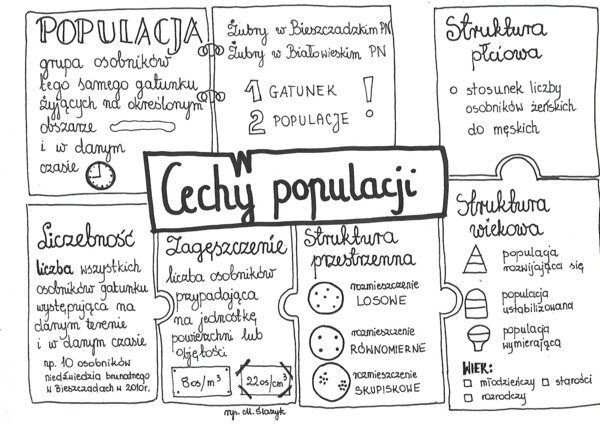 POPULACJA
grupa osobników
tego samego gatunku
żyjących na określonym
obszarze
i w danym
czasie
Żubry w Bieszczadzkim PN
Żubry w Białowieskim PN
1 GATUNEK
2 POPULACJE
!
Struktura
płciowa
stosunek liczby
osobników żeńskich
do męskich
Cechy populacji
Liczebność
liczba wszystkich
osobników gatunku
występująca na
danym terenie
i w danym czasie
np. 10 osobników
niedźwiedzia brunatnego
w Bieszczadach w 2010r.
Zagęszczenie
liczba osobników
przypadająca
na jednostkę
powierzchni lub
objętości
8os/m³
22os/cm³
Struktura
przestrzenna
rozmieszczenie
LOSOWE
rozmieszczenie
RÓWNOMIERNE
rozmieszczenie
SKUPISKOWE
Struktura
wiekowa
populacja
rozwijająca się
populacja
ustabilizowana
populacja
wymierająca
WIEK:
młodzieńczy
starości
rozrodczy
rys. M. Ślązyk